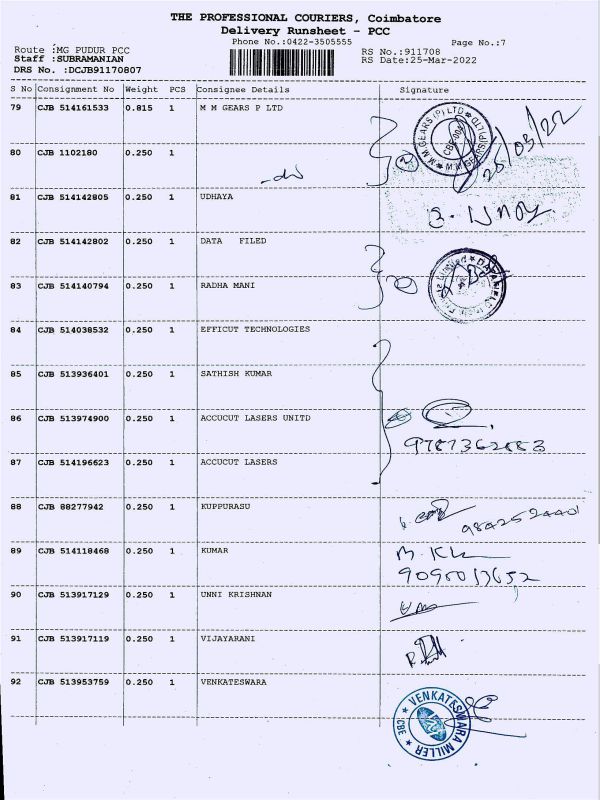 THE PROFESSIONAL COURIERS, Coimbatore
Delivery Runsheet - PCC
Phone No.:0422-3505555 Page No.:7
Route :MG PUDUR PCC RS No.:911708
Staff :SUBRAMANIAN RS Date:25-Mar-2022
DRS No. :DCJB91170807
S No Consignment No Weight PCS Consignee Details Signature
79 CJB 514161533 0.815 1 M M GEARS P LTD
M M GEARS (P) LTD
26/03/22
80 CJB 1102180 0.250 1
81 CJB 514142805 0.250 1 UDHAYA
82 CJB 514142802 0.250 1 DATA FILED
83 CJB 514140794 0.250 1 RADHA MANI
84 CJB 514038532 0.250 1 EFFICUT TECHNOLOGIES
85 CJB 513936401 0.250 1 SATHISH KUMAR
86 CJB 513974900 0.250 1 ACCUCUT LASERS UNITD
87 CJB 514196623 0.250 1 ACCUCUT LASERS
88 CJB 88277942 0.250 1 KUPPURASU
89 CJB 514118468 0.250 1 KUMAR
90 CJB 513917129 0.250 1 UNNI KRISHNAN
91 CJB 513917119 0.250 1 VIJAYARANI
92 CJB 513953759 0.250 1 VENKATESWARA
VENKATESWARA MILLER
CBE